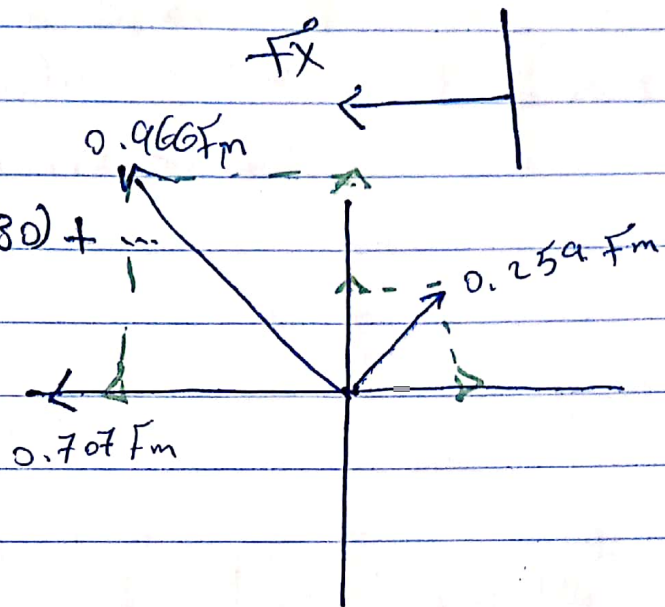 Fx
0.966Fm
80) + ...
0.259 Fm
0.707 Fm